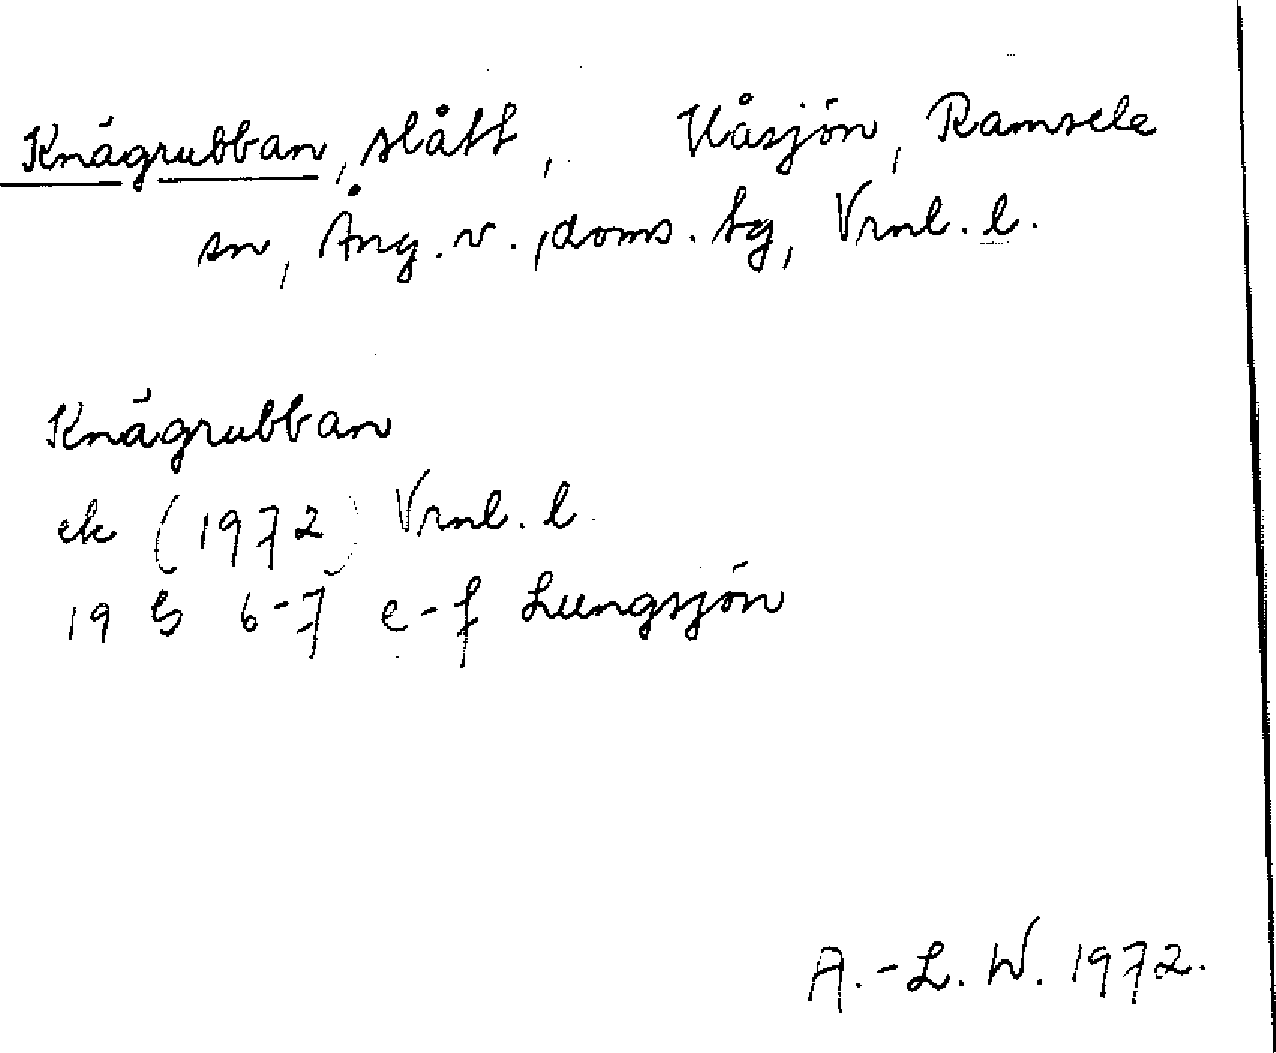 Knägrubban, slått, Kåsjön, Ramsele
sn, Ång. v., doms. tg, Vrnl. l.
Knägrubban
ek (1972) Vrnl. l.
19 G 6-7 e-f Lungsjön
A.-L. W. 1972.